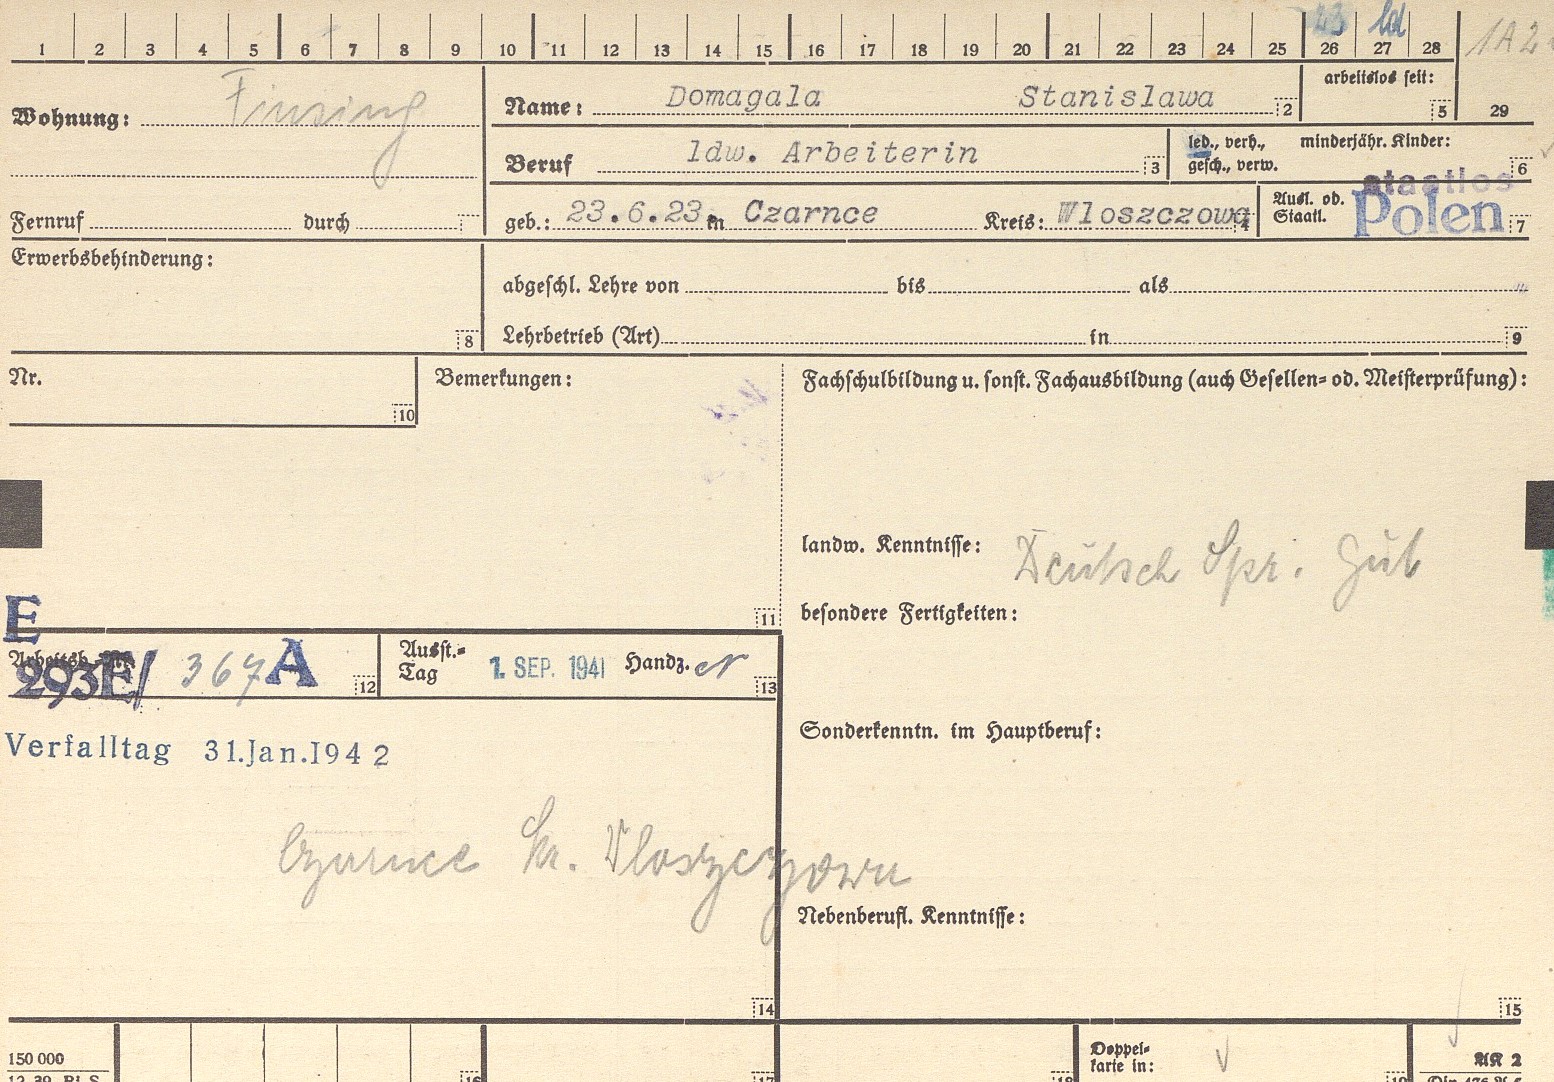 23 lol
1 2 3 4 5 6 7 8 9 10 11 12 13 14 15 16 17 18 19 20 21 22 23 24 25 26 27 28 1A2
29
Wohnung: Finsing
Name: Domagala Stanislawa 2
arbeitslos seit: 5
Beruf ldw. Arbeiterin 3
led., verh., gesch., verw.
minderjähr. Kinder: 6
Fernruf durch
geb.: 23.6.23. in Czarnce Kreis: Wloszczowa 4
Ausl. od. Staatl. staatlos Polen 7
Erwerbsbehinderung: 8
abgeschl. Lehre von bis als
Lehrbetrieb (Art) in 9
Nr. 10
Bemerkungen: 11
Fachschulbildung u. sonst. Fachausbildung (auch Gesellen- od. Meisterprüfung):
landw. Kenntnisse: Deutsch Spr. gut
besondere Fertigkeiten:
E
Arbeitsb.-Nr. 293E/ 367 A 12
Ausst.-Tag 1. SEP. 1941 Handz. 13
Verfalltag 31.Jan.1942
Sonderkenntn. im Hauptberuf:
Czarnce Kr. Wloszczowa
Nebenberufl. Kenntnisse:
14
15
150 000
12. 39. Bl S
16
17
Doppelkarte in:
18
19
AK 2
Din 476 A 5